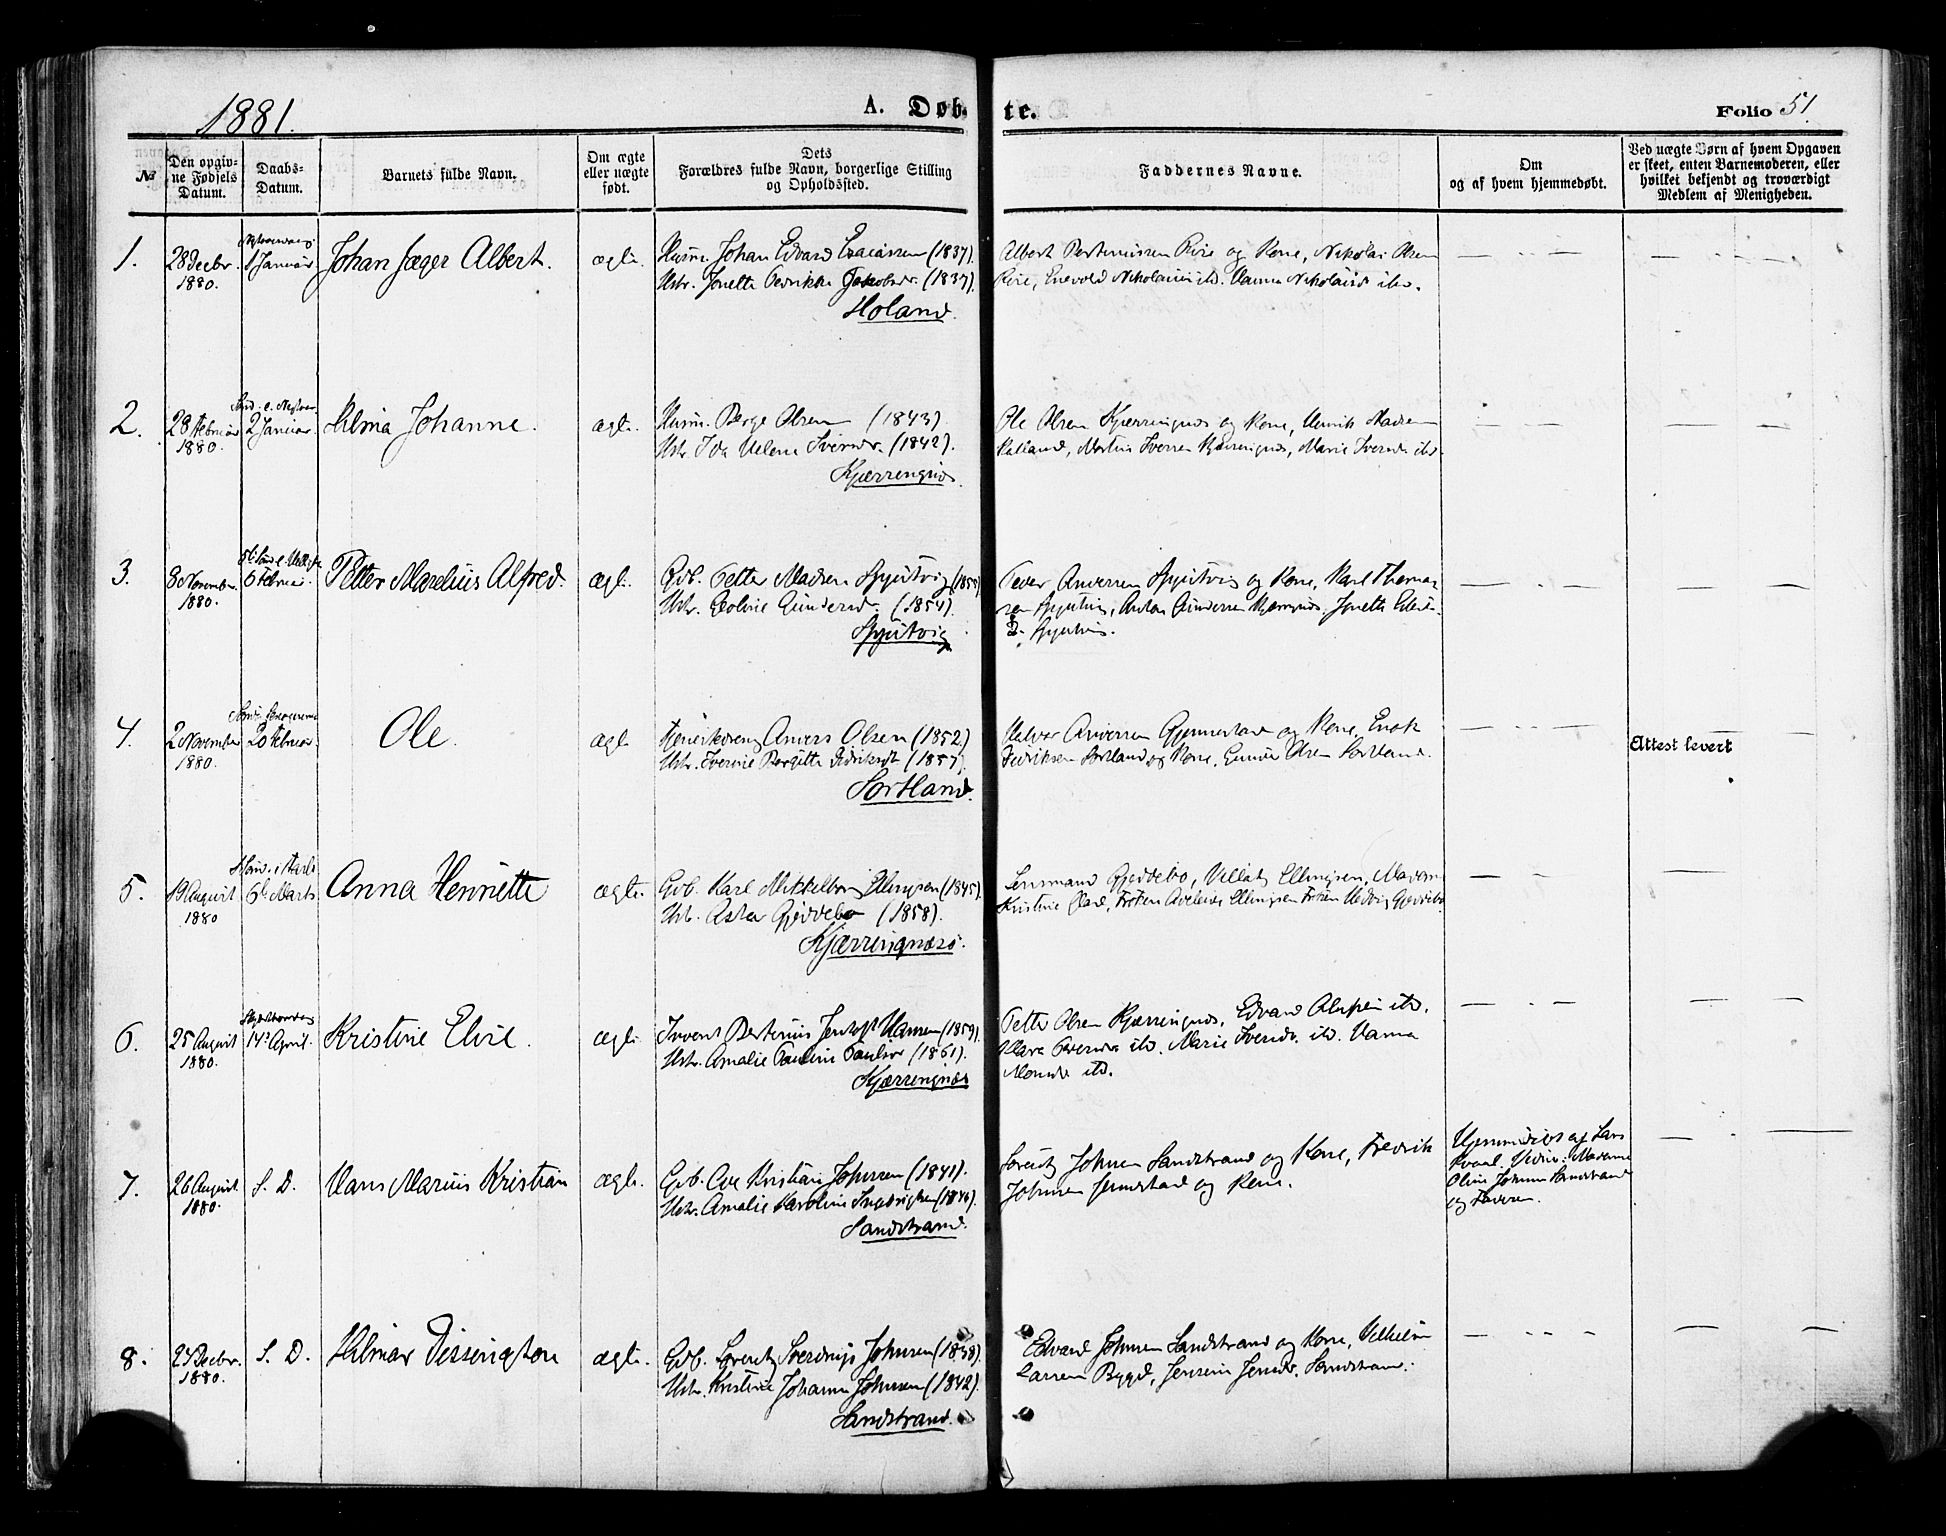 1881.
A. Døb-
te.
Folio 51.
№
Den opgiv-
ne Fødsels
Datum.
Daabs-
Datum.
Barnets fulde Navn.
Om ægte
eller uægte
født.
Dets
Forældres fulde Navn, borgerlige Stilling
og Opholdssted.
Faddernes Navne.
Om
og af hvem hjemmedøbt.
Ved uægte Børn af hvem Opgaven
er skeet, enten Barnemoderen, eller
hvilket bekjendt og troværdigt
Medlem af Menigheden.
1.
28 Decbr.
1880.
1 Januar
Johan Jæger Albert.
ægte.
Husm. Johan Edvard (1837).
Ustr. Jonette Fredrikke Jakobsdr. (1837).
Holand.
Albert Rire og Kone, Nikolai Olsen
Rire, Enevold Nikolaisen ibd. Hanna Nikolaisd. ibd.
— — —
2.
28 Februar
1880.
2 Januar.
Hilma Johanne.
ægte.
Husm. Berge Olsen (1843)
Ustr. Ida Helene Iversdr. (1842).
Kjærringnes.
Ole Olsen Kjærringnes og Kone, Henrik Madsen
Martin Iversen Kjærringnes, Marie Iversdr. ibd.
— — —
3.
8 November
1880.
6 Februar.
Petter Marelius Alfred.
ægte.
Gdb. Petter Madsen Spjutvig
Ustr. Gundersdr. (1854).
Spjutvig
Peder Andersen Spjutvig og Kone, Karl Thomas-
sen Spjutvig, Anton Gundersen Kjærringnes, Jonette
D. Spjutvig.
— — —
4.
2 November
1880.
20 Februar
Ole.
ægte.
Anders Olsen (1852)
Ustr. Iverine Bergitte Didriksdt. (1857).
Sortland.
Halvor Andersen og Kone, Enok
Didriksen Sortland og Kone, Gunder Olsen Sortland.
— — —
Attest levert
5.
19 August
1880
6te Marts.
Anna Henriette
ægte.
Gdb. Karl Mikkelborg Ellingsen (1845).
Ustr. Asta Gjeddebo (1858).
Kjærringnæsø.
Lensmand Gjeddebo, Ellingsen, Madam
Kristine Frøken Adelaide Ellingsen Frøken Hedvig Gjeddebo.
— — —
6.
25 August
1880.
Skjærtorsdag
14de April.
Kristine Elise.
ægte.
Inderst Berteus Jentoft Hansen (1859).
Ustr. Amalie Pauline Paulsdr (1861).
Kjærringnæs
Petter Olsen Kjærringnes. Edvard ibd.
Klara Pedersdr. ibd. Marie Iversdr. ibd. Hanna
ibd.
— — —
7.
26 August
1880.
S. D.
Hans Marius Kristian
ægte.
Gdb. Ove Kristian Johnsen (1841).
Ustr. Amalie Karoline
Sandstrand.
Lorentz Johnsen Sandstrand og Kone, Fredrik
Johnsen og Kone.
Hjemmedøbt af Lars
Kvaal. Vidne: Madame
Oline Johnsen Sandstrand
og Faderen.
— — —
8.
23 Decbr.
1880.
S. D.
Hilmar Dissington
ægte.
Gdb. Lorentz Sverdrup Johnsen (1838).
Ustr. Kristine Johanne Johnsen (1842).
Sandstrand.
Edvard Johnsen Sandstrand og Kone, Vilhelm
Larsen Bygd, Jensine Jensdr. Sandstrand.
— — —